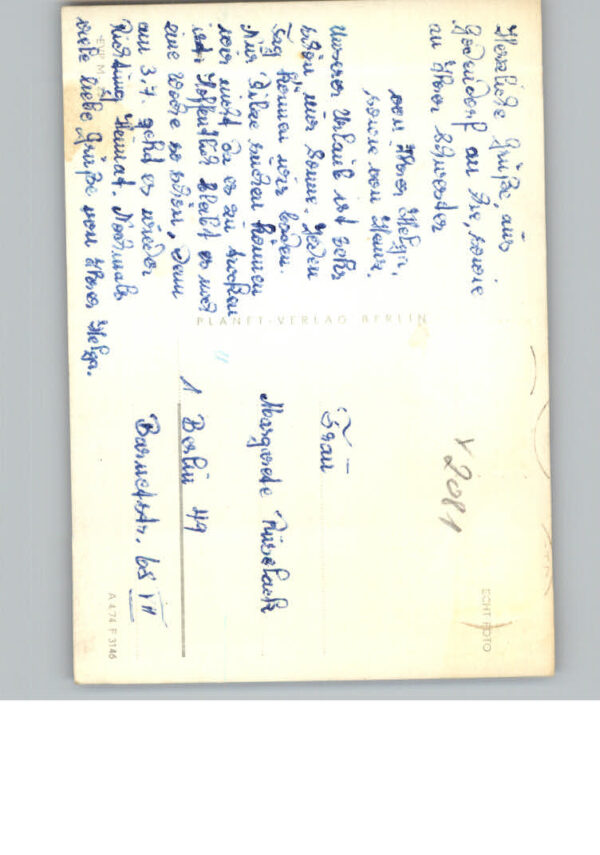 Herzliche Grüße, aus
Godendorf an Sie, sowie
an Ihrer Schwester
von Ihrer Helga,
sowie von Heinz.
Unser Urlaub ist sehr
schön nur Sonne. Jeden
Tag können wir baden.
Nur Pilze suchen können
wir nicht da es zu trocken
ist. Hoffentlich bleibt es noch
eine Woche so schön, denn
am 3.7. geht es wieder
Richtung Heimat. Nochmals
viele liebe Grüße von Ihrer Helga.
EVP M
PLANET-VERLAG BERLIN
ECHT FOTO
x 2081
Frau
Margarete
1 Berlin 49
65 VII
A 474 F 3146